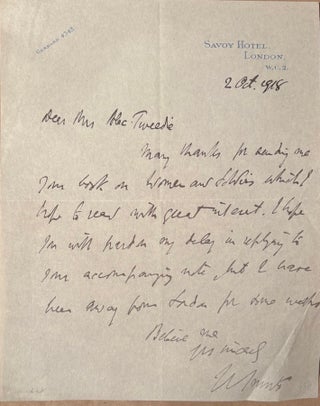 GERRARD 4343
SAVOY HOTEL,
LONDON.
W.C.2.
2 Oct. 1918
Dear Mrs Alec-Tweedie
Many thanks for sending me
your book on Women and Soldiers which I
hope to read with great interest. I hope
you will pardon my delay in replying to
your accompanying note, but I have
been away from London for some weeks
Believe me
yrs sincerely